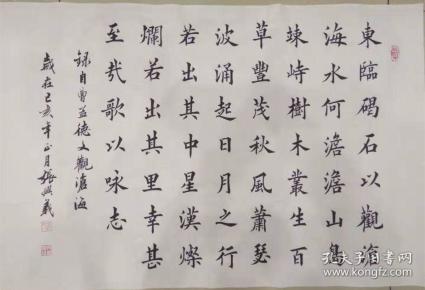 東臨碣石以觀滄
海水何澹澹山島
竦峙樹木叢生百
草豐茂秋風蕭瑟
波涌起日月之行
若出其中星漢燦
爛若出其里幸甚
至哉歌以咏志
錄自曹孟德文觀滄海
歲在己亥年正月張興義
孔夫子旧书网
www.kongfz.com